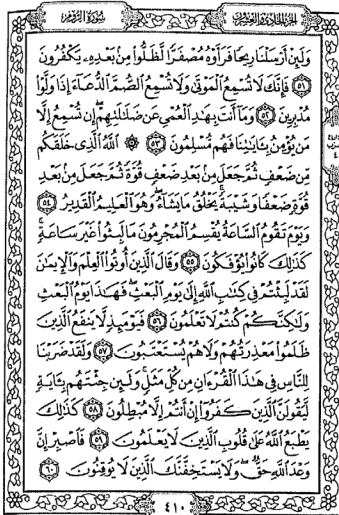 الجزء الحادي والعشرون سورة الروم
وَلَئِنْ أَرْسَلْنَا رِيحًا فَرَأَوْهُ مُصْفَرًّا لَّظَلُّوا۟ مِنۢ بَعْدِهِۦ يَكْفُرُونَ
٥١ فَإِنَّكَ لَا تُسْمِعُ ٱلْمَوْتَىٰ وَلَا تُسْمِعُ ٱلصُّمَّ ٱلدُّعَآءَ إِذَا وَلَّوْا۟
مُدْبِرِينَ ٥٢ وَمَآ أَنتَ بِهَٰدِ ٱلْعُمْىِ عَن ضَلَٰلَتِهِمْ ۖ إِن تُسْمِعُ إِلَّا
مَن يُؤْمِنُ بِـَٔايَٰتِنَا فَهُم مُّسْلِمُونَ ٥٣ ۞ ٱللَّهُ ٱلَّذِى خَلَقَكُم
مِّن ضَعْفٍ ثُمَّ جَعَلَ مِنۢ بَعْدِ ضَعْفٍ قُوَّةً ثُمَّ جَعَلَ مِنۢ بَعْدِ
قُوَّةٍ ضَعْفًا وَشَيْبَةً ۚ يَخْلُقُ مَا يَشَآءُ ۖ وَهُوَ ٱلْعَلِيمُ ٱلْقَدِيرُ ٥٤
وَيَوْمَ تَقُومُ ٱلسَّاعَةُ يُقْسِمُ ٱلْمُجْرِمُونَ مَا لَبِثُوا۟ غَيْرَ سَاعَةٍ ۚ
كَذَٰلِكَ كَانُوا۟ يُؤْفَكُونَ ٥٥ وَقَالَ ٱلَّذِينَ أُوتُوا۟ ٱلْعِلْمَ وَٱلْإِيمَٰنَ
لَقَدْ لَبِثْتُمْ فِى كِتَٰبِ ٱللَّهِ إِلَىٰ يَوْمِ ٱلْبَعْثِ ۖ فَهَٰذَا يَوْمُ ٱلْبَعْثِ
وَلَٰكِنَّكُمْ كُنتُمْ لَا تَعْلَمُونَ ٥٦ فَيَوْمَئِذٍ لَّا يَنفَعُ ٱلَّذِينَ
ظَلَمُوا۟ مَعْذِرَتُهُمْ وَلَا هُمْ يُسْتَعْتَبُونَ ٥٧ وَلَقَدْ ضَرَبْنَا
لِلنَّاسِ فِى هَٰذَا ٱلْقُرْءَانِ مِن كُلِّ مَثَلٍ ۚ وَلَئِن جِئْتَهُم بِـَٔايَةٍ
لَّيَقُولَنَّ ٱلَّذِينَ كَفَرُوٓا۟ إِنْ أَنتُمْ إِلَّا مُبْطِلُونَ ٥٨ كَذَٰلِكَ
يَطْبَعُ ٱللَّهُ عَلَىٰ قُلُوبِ ٱلَّذِينَ لَا يَعْلَمُونَ ٥٩ فَٱصْبِرْ إِنَّ
وَعْدَ ٱللَّهِ حَقٌّ ۖ وَلَا يَسْتَخِفَّنَّكَ ٱلَّذِينَ لَا يُوقِنُونَ ٦٠
٤١٠